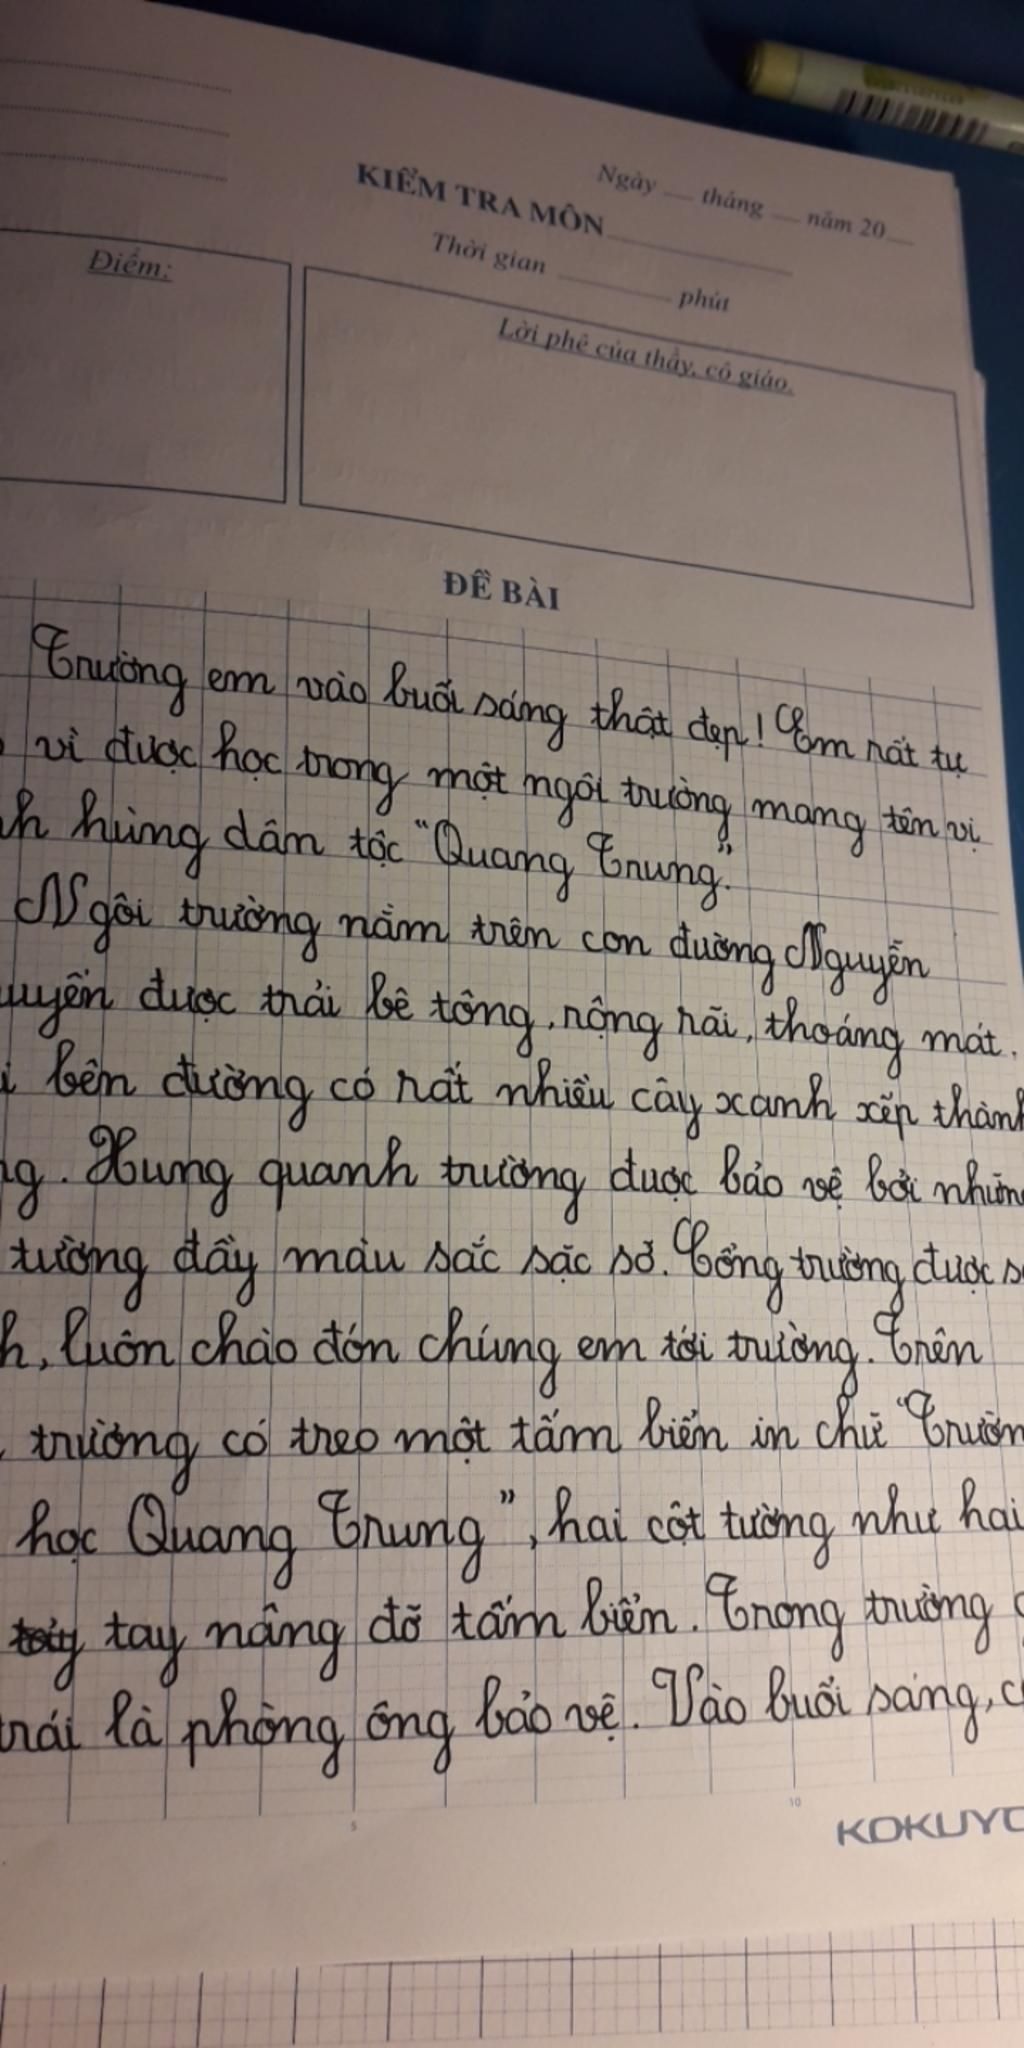 Ngày __ tháng __ năm 20__
KIỂM TRA MÔN
Thời gian ______ phút
Điểm:
Lời phê của thầy, cô giáo.
ĐỀ BÀI
Trường em vào buổi sáng thật đẹp! Em rất tự
vì được học trong một ngôi trường mang tên vị
hùng dân tộc "Quang Trung".
Ngôi trường nằm trên con đường Nguyễn
được trải bê tông, rộng rãi, thoáng mát.
bên đường có rất nhiều cây xanh xếp thành
Xung quanh trường được bảo vệ bởi những
tường đầy màu sắc sặc sỡ. Cổng trường được
luôn chào đón chúng em tới trường. Trên
trường có treo một tấm biển in chữ "Trường
học Quang Trung", hai cột tường như hai
tay nâng đỡ tấm biển. Trong trường
trái là phòng ông bảo vệ. Vào buổi sáng,
5
10
KOKUYO